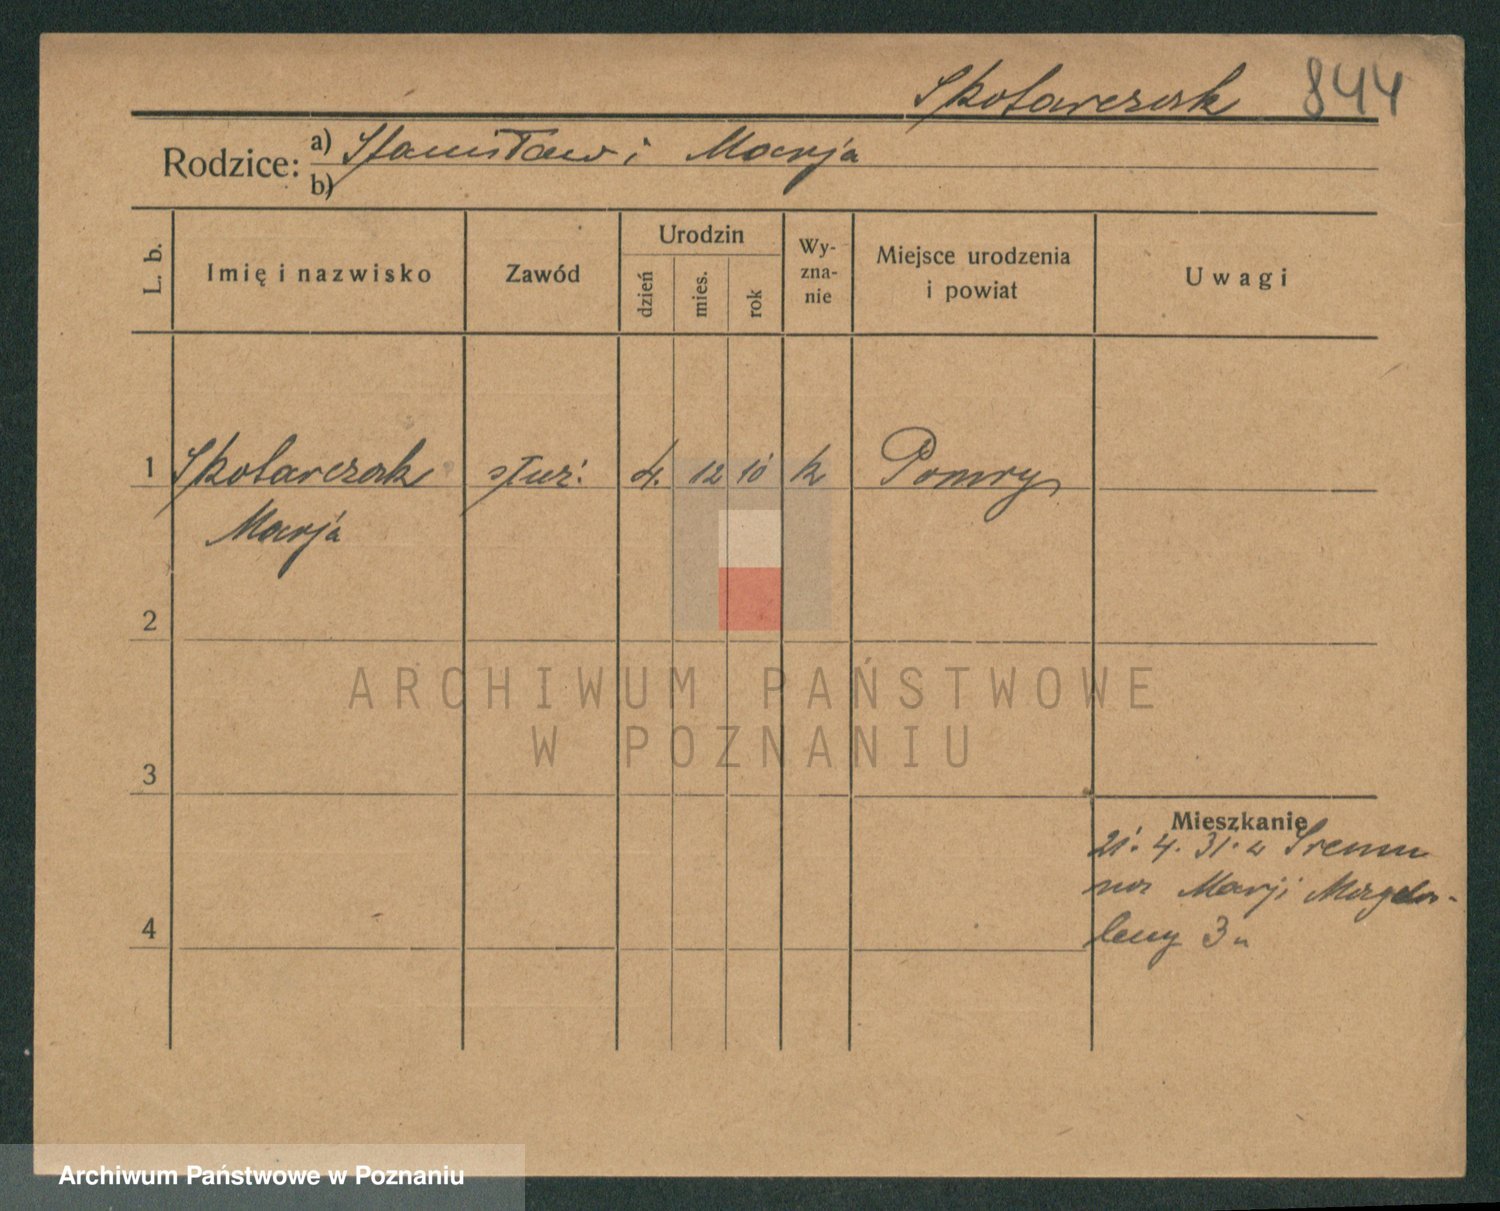 Skotarczak 844
Rodzice: a) Stanisław i Marja
b)
L. b.
Imię i nazwisko
Zawód
Urodzin
dzień
mies.
rok
Wy-
zna-
nie
Miejsce urodzenia
i powiat
Uwagi
1 Skotarczak służ. 4. 12 10 k
Marja
2
3
4
Mieszkanie
21. 4. 31. z Śremu
na Marji Magda-
leny 3
ARCHIWUM PAŃSTWOWE
W POZNANIU
Archiwum Państwowe w Poznaniu